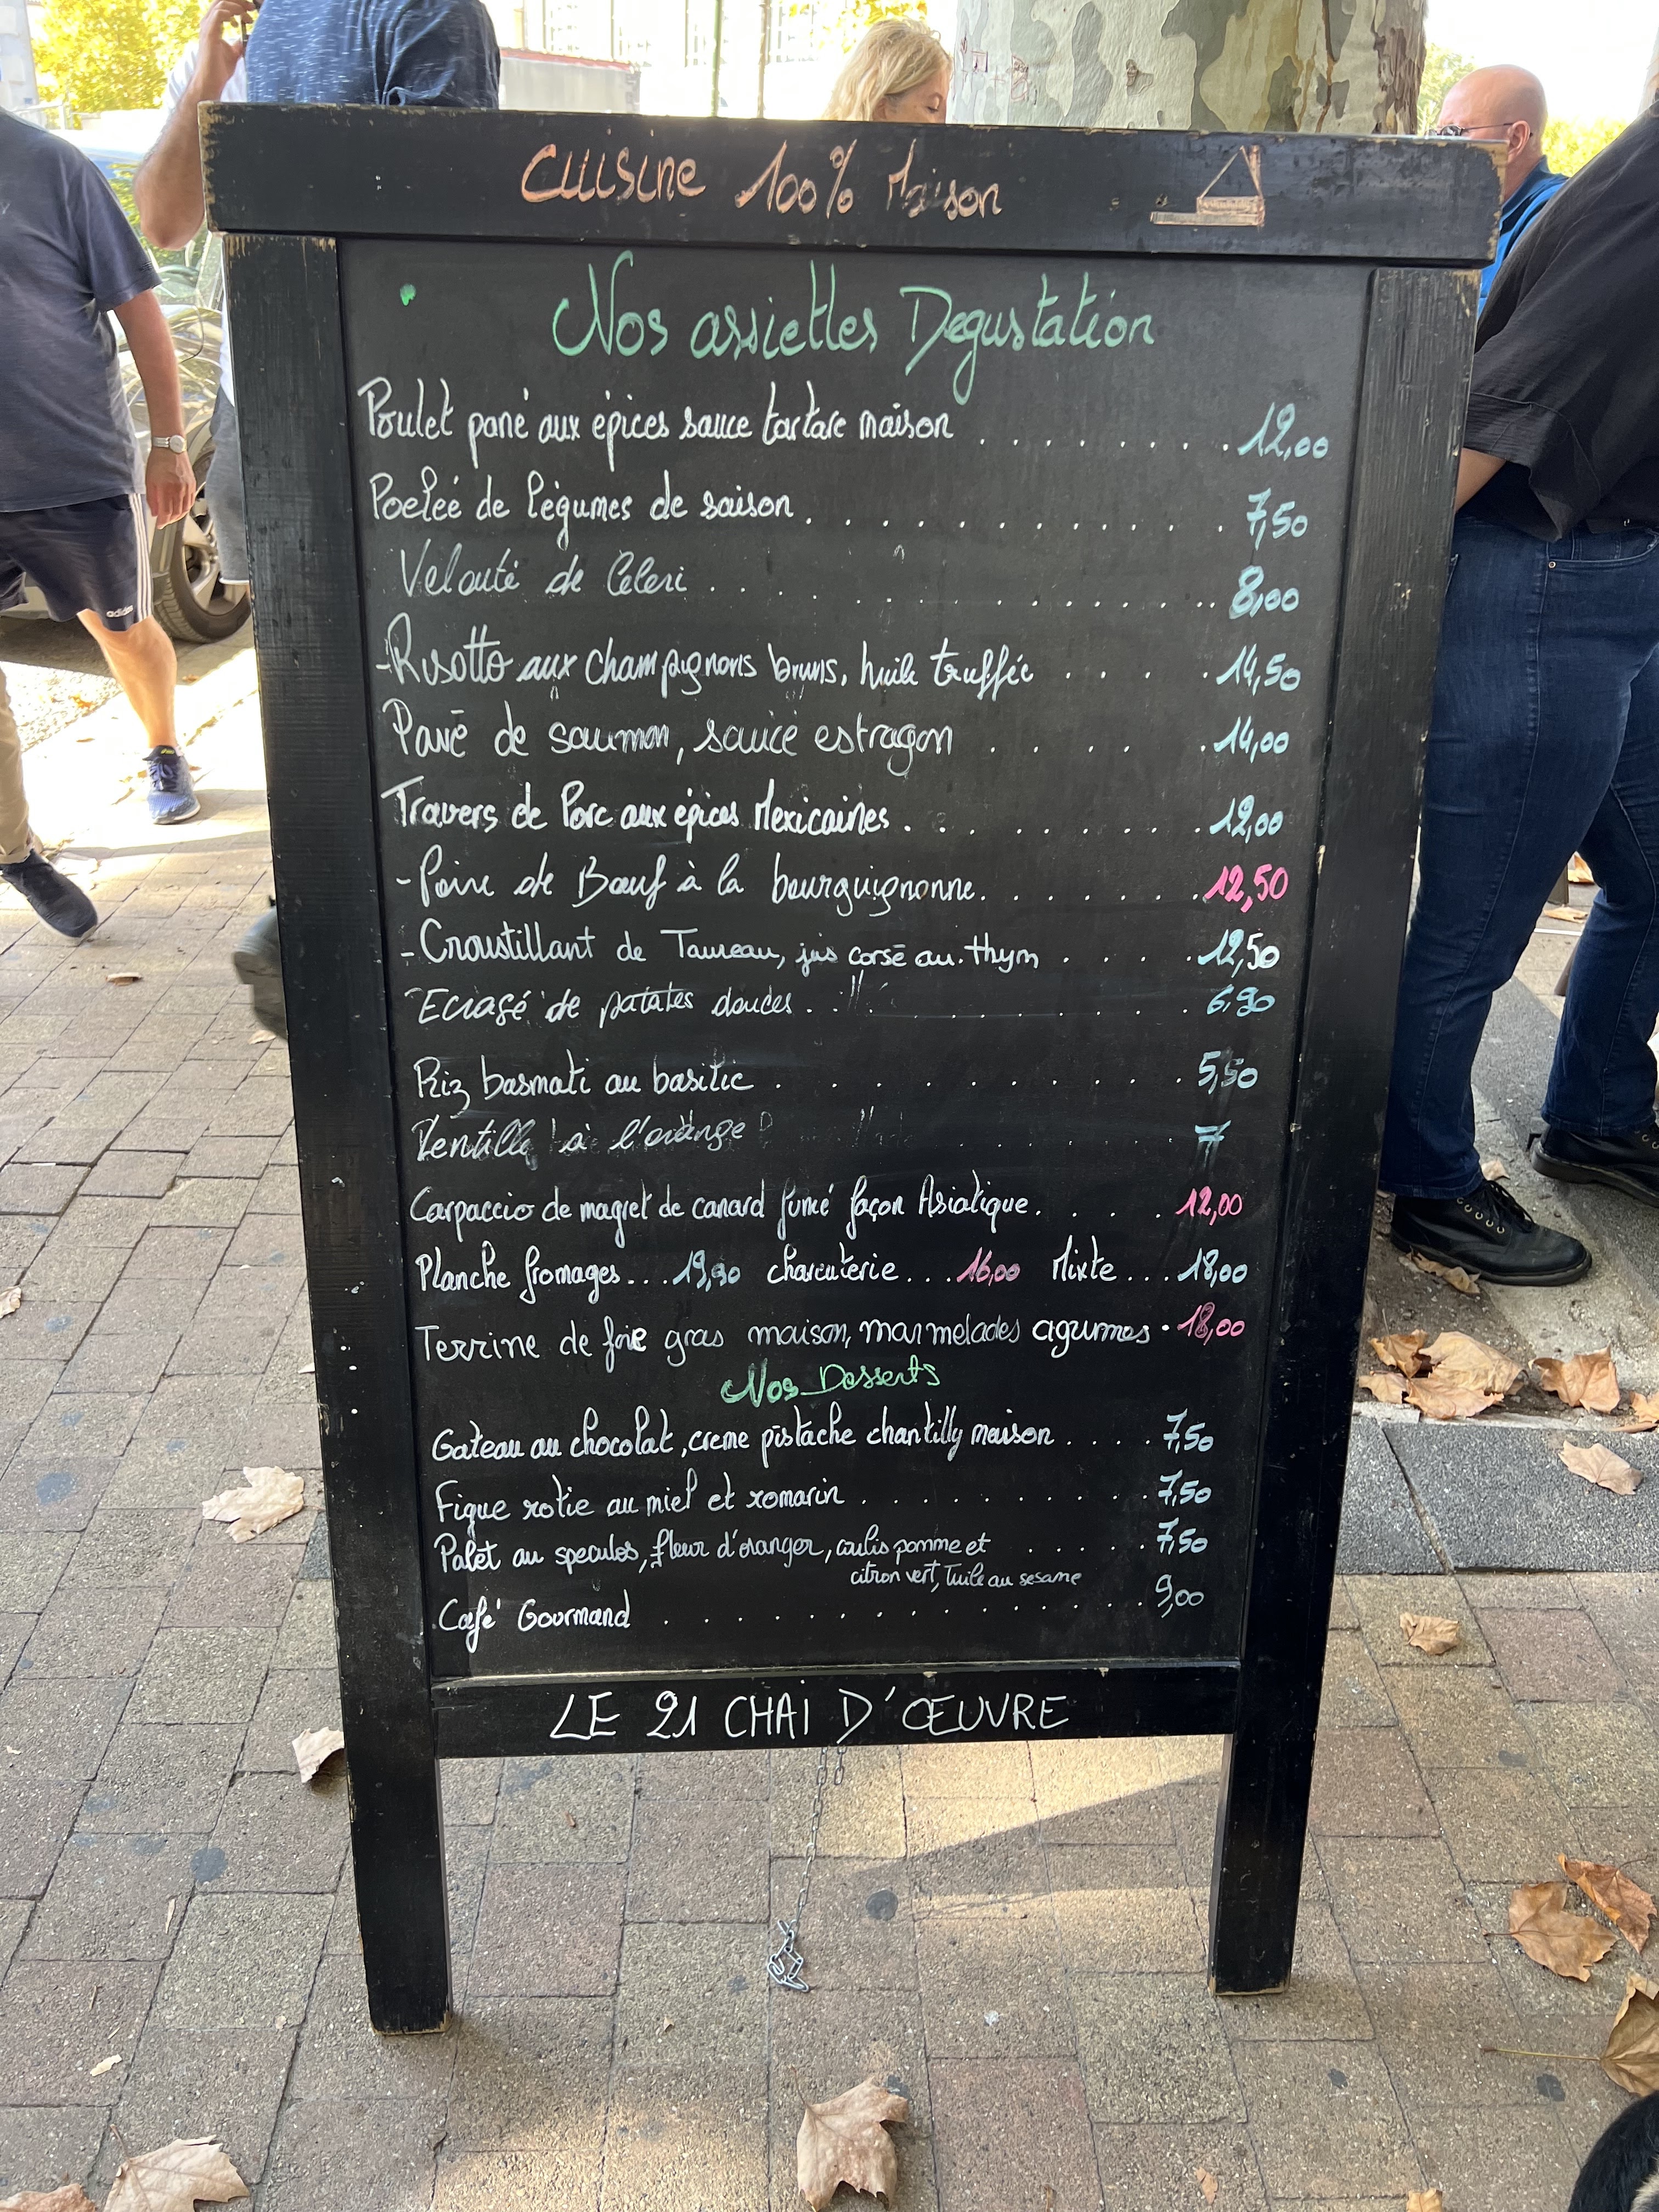 Cuisine 100% Maison
Nos assiettes Degustation
Poulet pané aux épices sauce tartare maison . . . . . . . . 12,00
Poeleé de légumes de saison . . . . . . . . . . . . 7,50
Velouté de Céleri . . . . . . . . . . . . . . 8,00
-Risotto aux champignons bruns, huile truffée . . . . 14,50
Pavé de saumon, sauce estragon . . . . 14,00
Travers de Porc aux épices Mexicaines . . . . . . . . 12,00
- Poire de Bœuf à la bourguignonne . . . . . . . 12,50
- Croustillant de Taureau, jus corsé au thym . . . . 12,50
Ecrasé de patates douces . . . . . . . . . . 6,90
Riz basmati au basilic . . . . . . . . . . . . 5,50
Lentille à l'orange . . . . . 7
Carpaccio de magret de canard fumé façon Asiatique . . . . 12,00
Planche fromages...19,90 charcuterie...16,00 Mixte...18,00
Terrine de foie gras maison, marmelades agrumes . 18,00
Nos Desserts
Gateau au chocolat, creme pistache chantilly maison . . . . 7,50
Figue rotie au miel et romarin . . . . . . . . . . 7,50
Palet au speculos, fleur d'oranger, coulis pomme et . . . . . . 7,50
citron vert, Tuile au sesame
Café Gourmand . . . . . . . . . . . . . . 9,00
LE 21 CHAI D'ŒUVRE
adidas